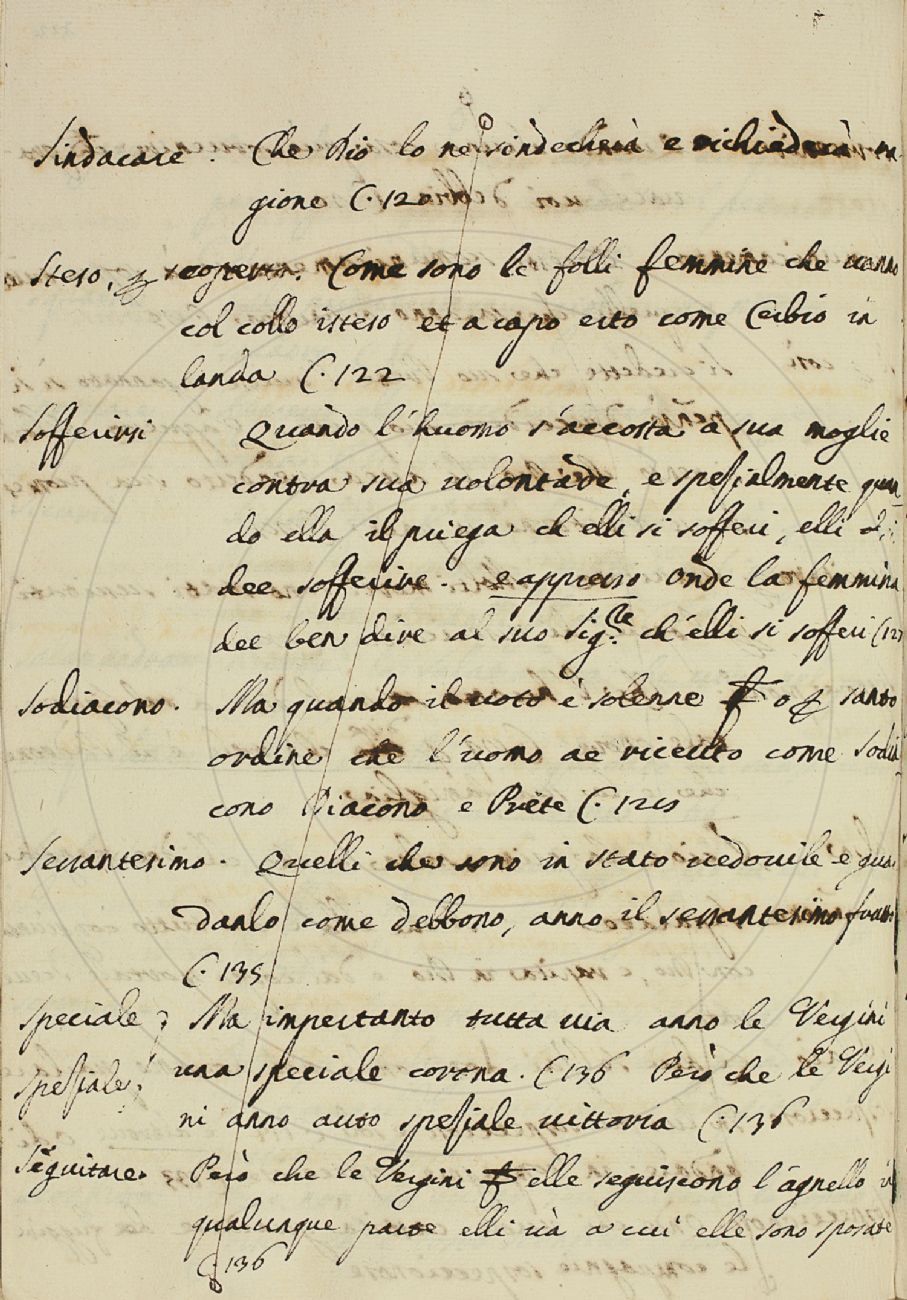 Sindacare. Che Dio lo ne sindecherà e richiederà ra-
gione C. 120
Steso, scoperto. Come sono le folli femmine che vanno
col collo isteso et a capo erto come Cerbio in
landa C. 122
Sofferirsi Quando l'huomo s'accosta a sua moglie
contra sua volontade, e spesialmente quan-
do ella il priega ch'elli si sofferi, elli
dee sofferire. e appresso onde la femmina
dee ben dire al suo Sig.re ch'elli si sofferi C. 127
Sodiacono. Ma quando il voto è solenne o santo
ordine che l'uomo ae riceuto come Sodia-
cono Diacono e Prete C. 129
Sessantesimo. Quelli che sono in stato vedovile e guar-
danlo come debbono, anno il sessantesimo frutto
C. 135
Speciale, Ma impertanto tutta via anno le Vergini
una speciale corona. C. 136 Però che le Vergi-
spesiale, ni anno auto spesiale vittoria C. 136
Seguitare. Però che le Vergini elle seguiscono l'agnello in
qualunque parte elli và a cui elle sono sposate
C. 136